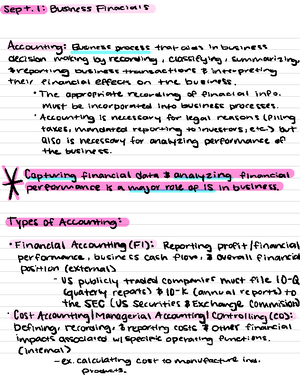 Sept. 1: Business Financials
Accounting: Business process that aides in business
decision making by recording, classifying, summarizing,
& reporting business transactions & interpreting
their financial effects on the business.
• The appropriate recording of financial info.
must be incorporated into business processes.
• Accounting is necessary for legal reasons (filing
taxes, mandated reporting to investors, etc.) but
also is necessary for analyzing performance of
the business.
Capturing financial data & analyzing financial
performance is a major role of IS in business.
Types of Accounting:
• Financial Accounting (FI): Reporting profit/financial
performance, business cash flow, & overall financial
position (external)
- US publicly traded companies must file 10-Q
(quaterly reports) & 10-K (annual reports) to
the SEC (US Securities & Exchange Commission)
• Cost Accounting/Managerial Accounting/Controlling (CO):
Defining, recording, & reporting costs & other financial
impacts associated w/ specific operating functions.
(internal)
- ex. calculating cost to manufacture ind.
products.